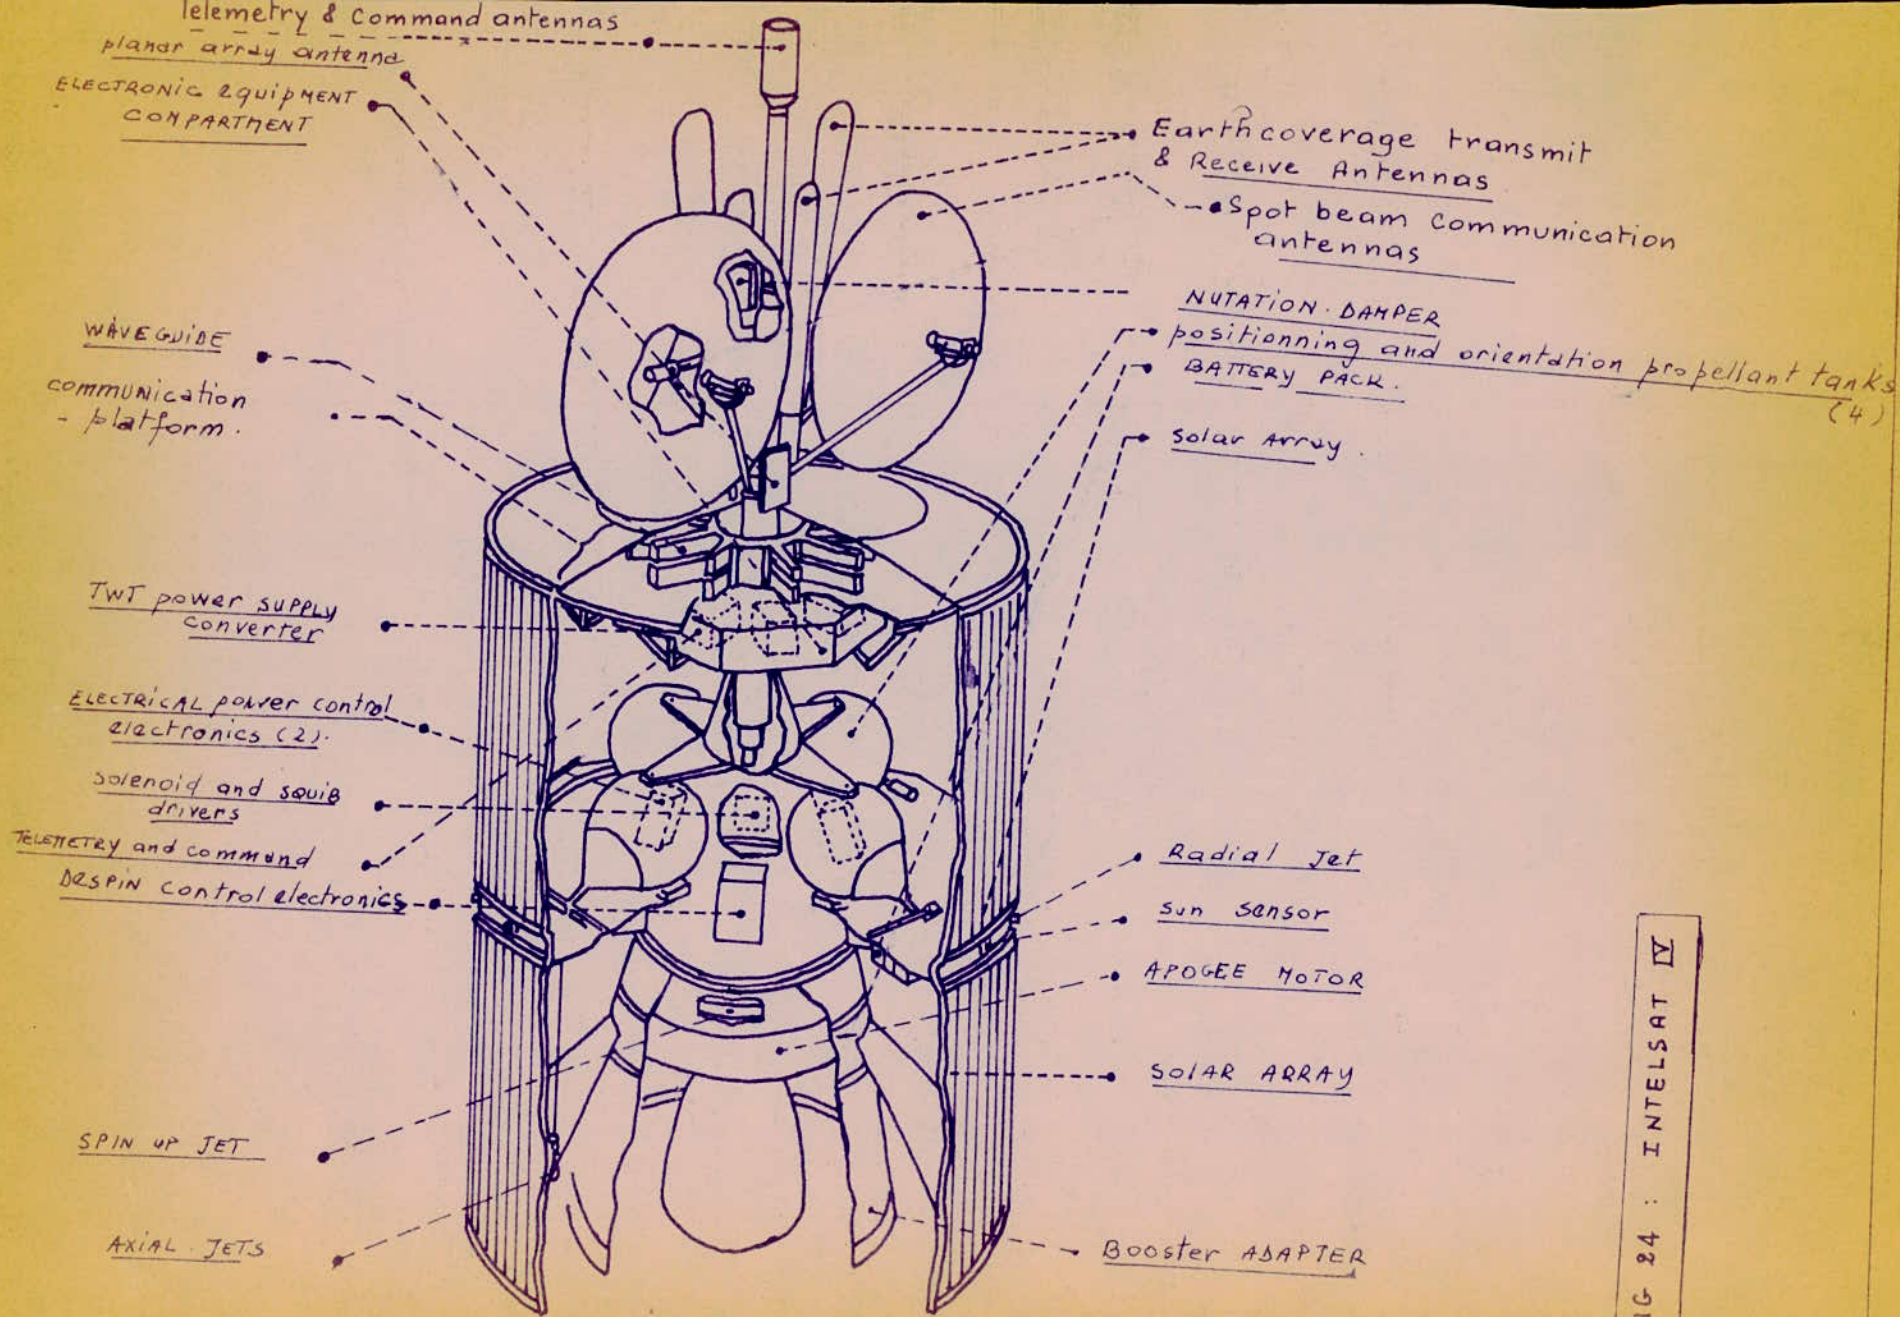 Telemetry & Command antennas
planar array antenna
ELECTRONIC equipMENT
COMPARTMENT
WAVEGUIDE
communication
- platform.
TWT power SUPPLY
converter
ELECTRICAL power control
electronics (2).
Solenoid and SQUIB
drivers
TELEMETRY and command
DESPIN control electronics
SPIN UP JET
AXIAL JETS
Earth coverage transmit
& Receive Antennas
Spot beam communication
antennas
NUTATION DAMPER
positionning and orientation propellant tanks
(4)
BATTERY PACK.
Solar Array.
Radial Jet
Sun Sensor
APOGEE MOTOR
SOLAR ARRAY
Booster ADAPTER
IG 24 : INTELSAT IV